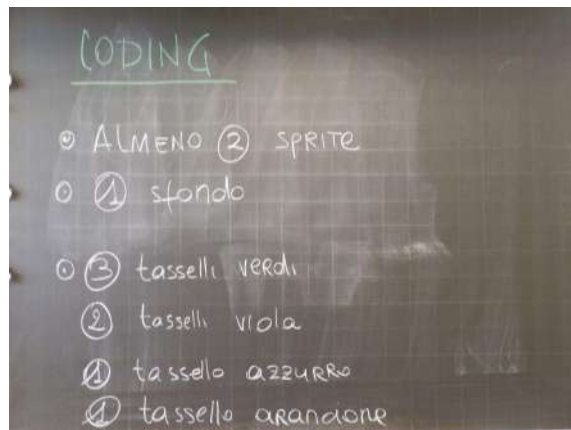 CODING
ALMENO 2 SPRITE
1 sfondo
3 tasselli verdi
2 tasselli viola
1 tassello azzurro
1 tassello arancione